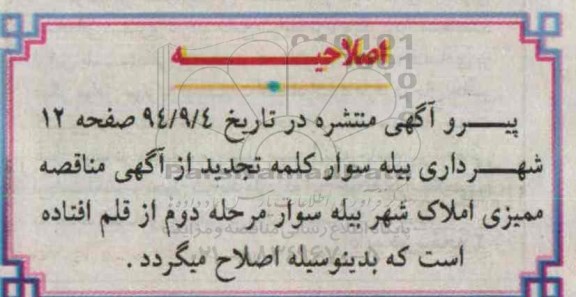 اصلاحیـــــــــه
پیـــرو آگهی منتشره در تاریخ ۹۴/۹/۴ صفحه ۱۲
شهـــرداری پیله سوار کلمه تجدید از آگهی مناقصه
ممیزی املاک شهر پیله سوار مرحله دوم از قلم افتاده
است که بدینوسیله اصلاح میگردد .